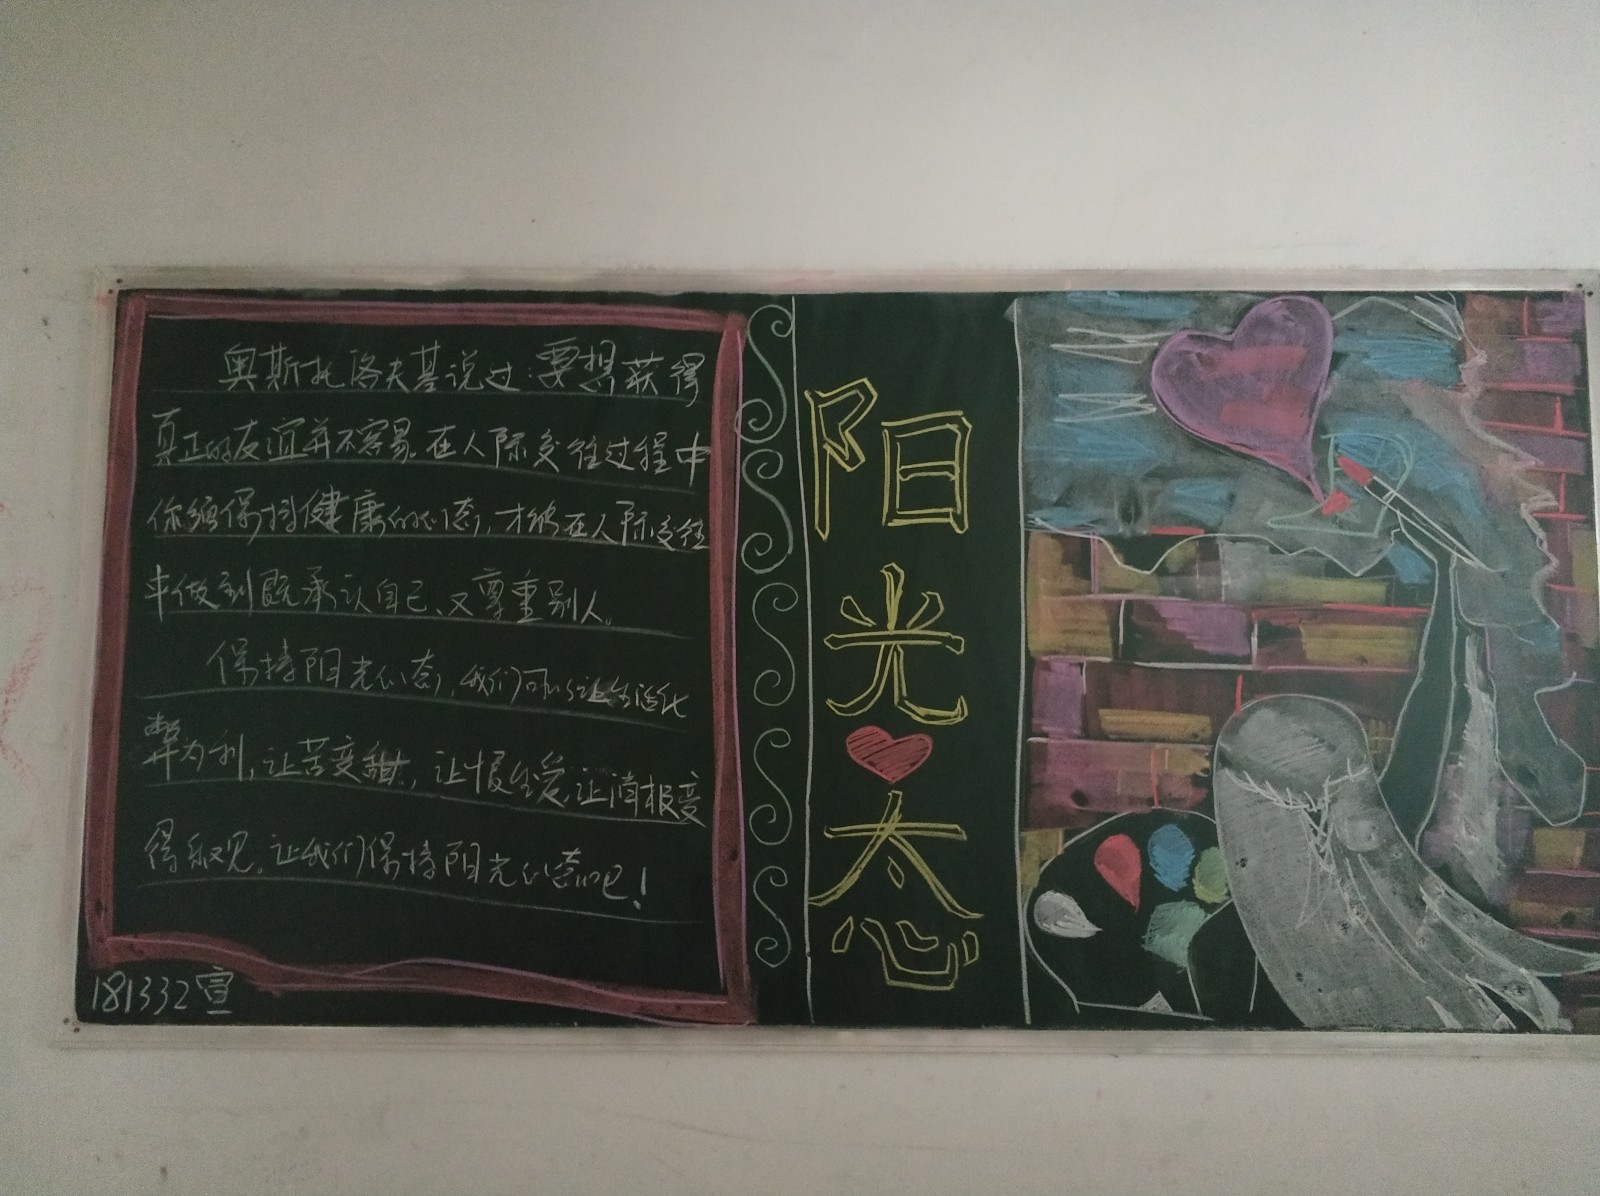 奥斯托洛夫基说过:要想获得
真正的友谊并不容易,在人际交往过程中
你须保持健康的心态,才能在人际交往
中做到既承认自己、又尊重别人。
保持阳光心态,我们可以让生活化
弊为利,让苦变甜,让恨生爱,让消极变
得乐观。让我们保持阳光心态吧!
181332宣
阳
光
态